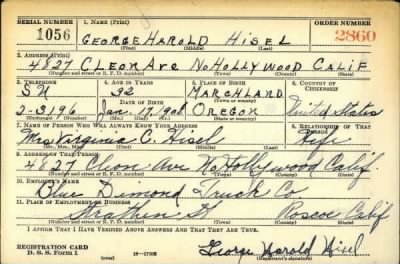 SERIAL NUMBER 1. NAME (Print) ORDER NUMBER
1056 GEORGE HAROLD HISEL 2860
(First) (Middle) (Last)
2. ADDRESS (Print)
4827 CLEON AVE NO HOLLYWOOD CALIF
(Number and street or R. F. D. number) (Town) (County) (State)
3. TELEPHONE 4. AGE IN YEARS 5. PLACE OF BIRTH 6. COUNTRY OF CITIZENSHIP
SU 32 MARCHLAND
DATE OF BIRTH
2-3196 Jan. 17 1908 OREGON United States
(Exchange) (Number) (Mo.) (Day) (Yr.) (State or country)
7. NAME OF PERSON WHO WILL ALWAYS KNOW YOUR ADDRESS 8. RELATIONSHIP OF THAT PERSON
Mrs Virginia C. Hisel Wife
(Mr., Mrs., Miss) (First) (Middle) (Last)
9. ADDRESS OF THAT PERSON
4827 Cleon Ave No Hollywood Calif.
(Number and street or R. F. D. number) (Town) (County) (State)
10. EMPLOYER'S NAME
Blue Dimond Truck Co
11. PLACE OF EMPLOYMENT OR BUSINESS
Strathern St Roscoe Calif
(Number and street or R. F. D. number) (Town) (County) (State)
I AFFIRM THAT I HAVE VERIFIED ABOVE ANSWERS AND THAT THEY ARE TRUE.
REGISTRATION CARD
D. S. S. Form 1 (over) 16-17105 George Harold Hisel
(Registrant's signature)